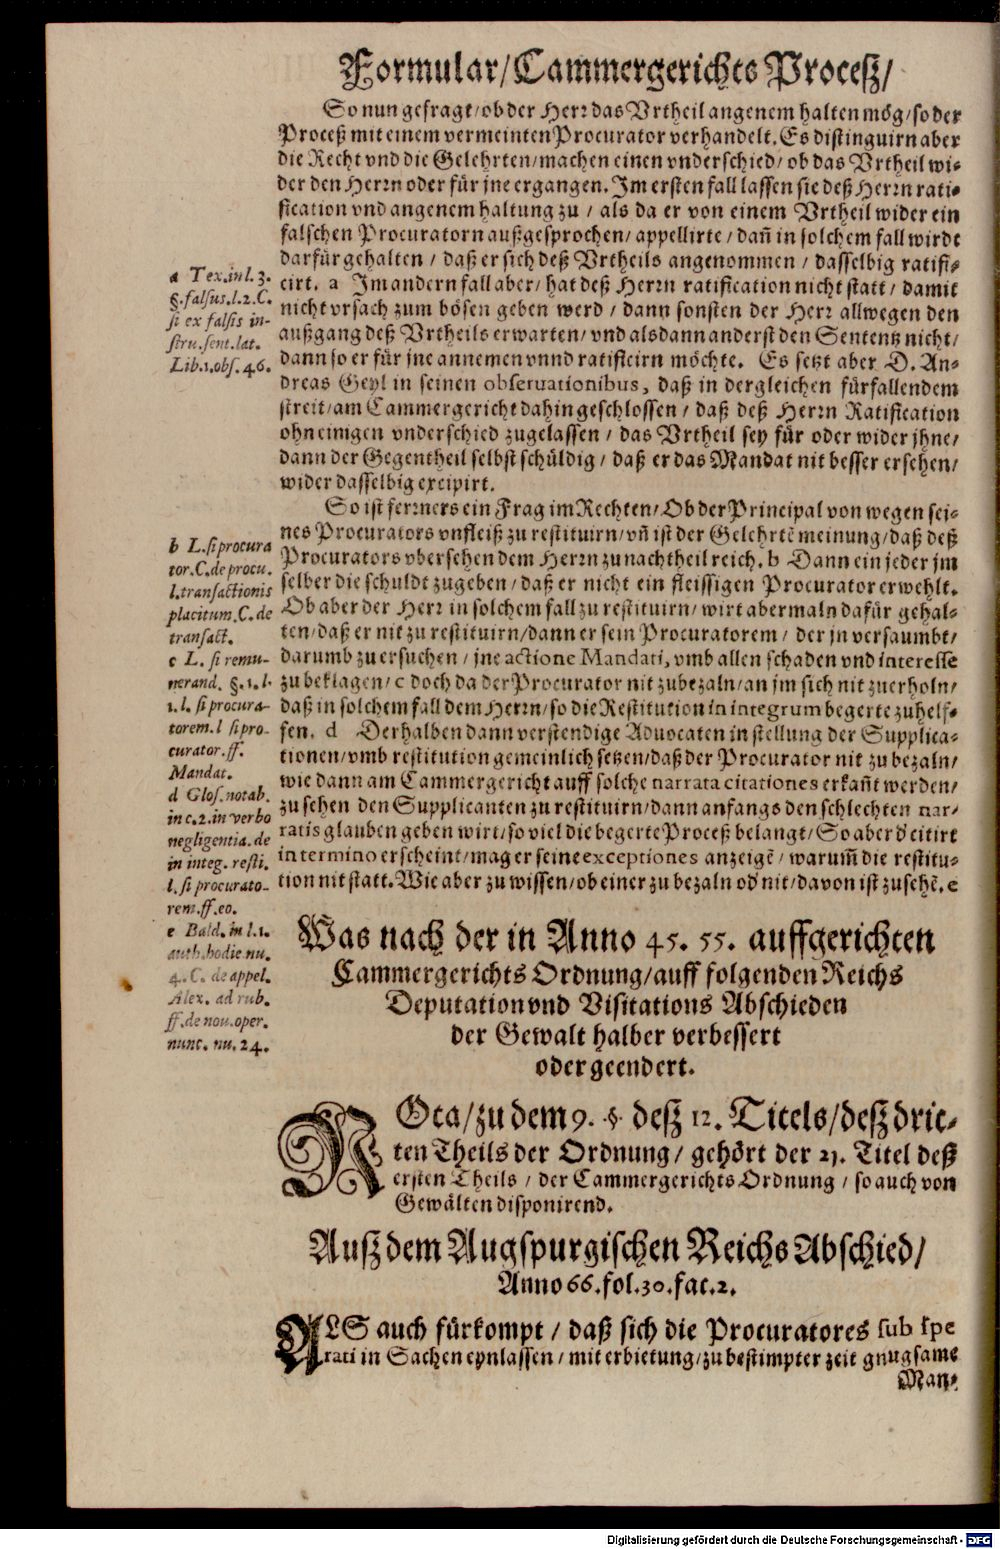 Formular/Cammergerichts Proceß/
So nun gefragt/ob der Herr das Vrtheil angenem halten mög/so der
Proceß mit einem vermeinten Procurator verhandelt. Es distinguirn aber
die Recht vnd die Gelehrten/machen einen vnderschied/ ob das Vrtheil wi-
der den Herrn oder für jne ergangen. Im ersten fall lassen sie deß Herrn rati-
fication vnd angenem haltung zu / als da er von einem Vrtheil wider ein
falschen Procuratorn außgesprochen/ appellirte / dañ in solchem fall wirdt
darfür gehalten / daß er sich deß Vrtheils angenommen / dasselbig ratifi-
cirt. a Im andern fall aber/ hat deß Herrn ratification nicht statt / damit
nicht vrsach zum bösen geben werd / dann sonsten der Herr allwegen den
außgang deß Vrtheils erwarten/ vnd alsdann anderst den Sententz nicht/
dann so er für jne annemen vnnd ratificirn möchte. Es setzt aber D. An-
dreas Geyl in seinen obseruationibus, daß in dergleichen fürfallendem
streit/am Cammergericht dahin geschlossen / daß deß Herrn Ratification
ohn einigen vnderschied zugelassen / das Vrtheil sey für oder wider jhne/
dann der Gegentheil selbst schüldig / daß er das Mandat nit besser ersehen/
wider dasselbig excipirt.
a Tex. in l. 3.
§. falsus. l. 2. C.
si ex falsis in-
stru. sent. lat.
Lib. 1. obs. 46.
So ist ferrners ein Frag im Rechten/Ob der Principal von wegen sei-
nes Procurators vnfleiß zu restituirn/vñ ist der Gelehrtē meinung/daß deß
Procurators vbersehen dem Herrn zu nachtheil reich. b Dann ein jeder jm
selber die schuldt zugeben/ daß er nicht ein fleissigen Procurator erwehlt.
Ob aber der Herr in solchem fall zu restituirn/ wirt abermaln dafür gehal-
ten/daß er nit zu restituirn/dann er sein Procuratorem / der jn versaumbt/
darumb zu ersuchen / jne actione Mandati, vmb allen schaden vnd interesse
zu beklagen/ c doch da der Procurator nit zubezaln/an jm sich nit zuerholn/
daß in solchem fall dem Herrn/so die Restitution in integrum begerte zuhelf-
fen. d Derhalben dann verstendige Aduocaten in stellung der Supplica-
tionen/vmb restitution gemeinlich setzen/daß der Procurator nit zu bezaln/
wie dann am Cammergericht auff solche narrata citationes erkañt werden/
zu sehen den Supplicanten zu restituirn/dann anfangs den schlechten nar-
ratis glauben geben wirt/so viel die begerte Proceß belangt/So aber d' citirt
in termino erscheint/mag er seine exceptiones anzeigē / warum̃ die restitu-
tion nit statt. Wie aber zu wissen/ob einer zu bezaln od' nit/davon ist zusehē. e
b L. si procura
tor. C. de procu.
l. transactionis
placitum. C. de
transact.
c L. si remu-
nerand. §. 1. l.
1. l. si procura-
torem. l si pro-
curator. ff.
Mandat.
d Glos. notab.
in c. 2. in verbo
negligentia. de
in integ. resti.
l. si procurato-
rem. ff. eo.
e Bald. in l. 1.
auth. hodie nu.
4. C. de appel.
Alex. ad rub.
ff. de nou. oper.
nunc. nu. 24.
Was nach der in Anno 45. 55. auffgerichten
Cammergerichts Ordnung/auff folgenden Reichs
Deputation vnd Visitations Abschieden
der Gewalt halber verbessert
oder geendert.
NOta/zu dem 9. § deß 12. Titels/deß drit-
ten Theils der Ordnung/ gehört der 21. Titel deß
ersten Theils / der Cammergerichts Ordnung / so auch von
Gewälten disponirend.
Auß dem Augspurgischen Reichs Abschied/
Anno 66. fol. 30. fac. 2.
ALS auch fürkompt / daß sich die Procuratores sub spe
rati in Sachen eynlassen / mit erbietung/zu bestimpter zeit gnugsame
Man-
Digitalisierung gefördert durch die Deutsche Forschungsgemeinschaft - DFG